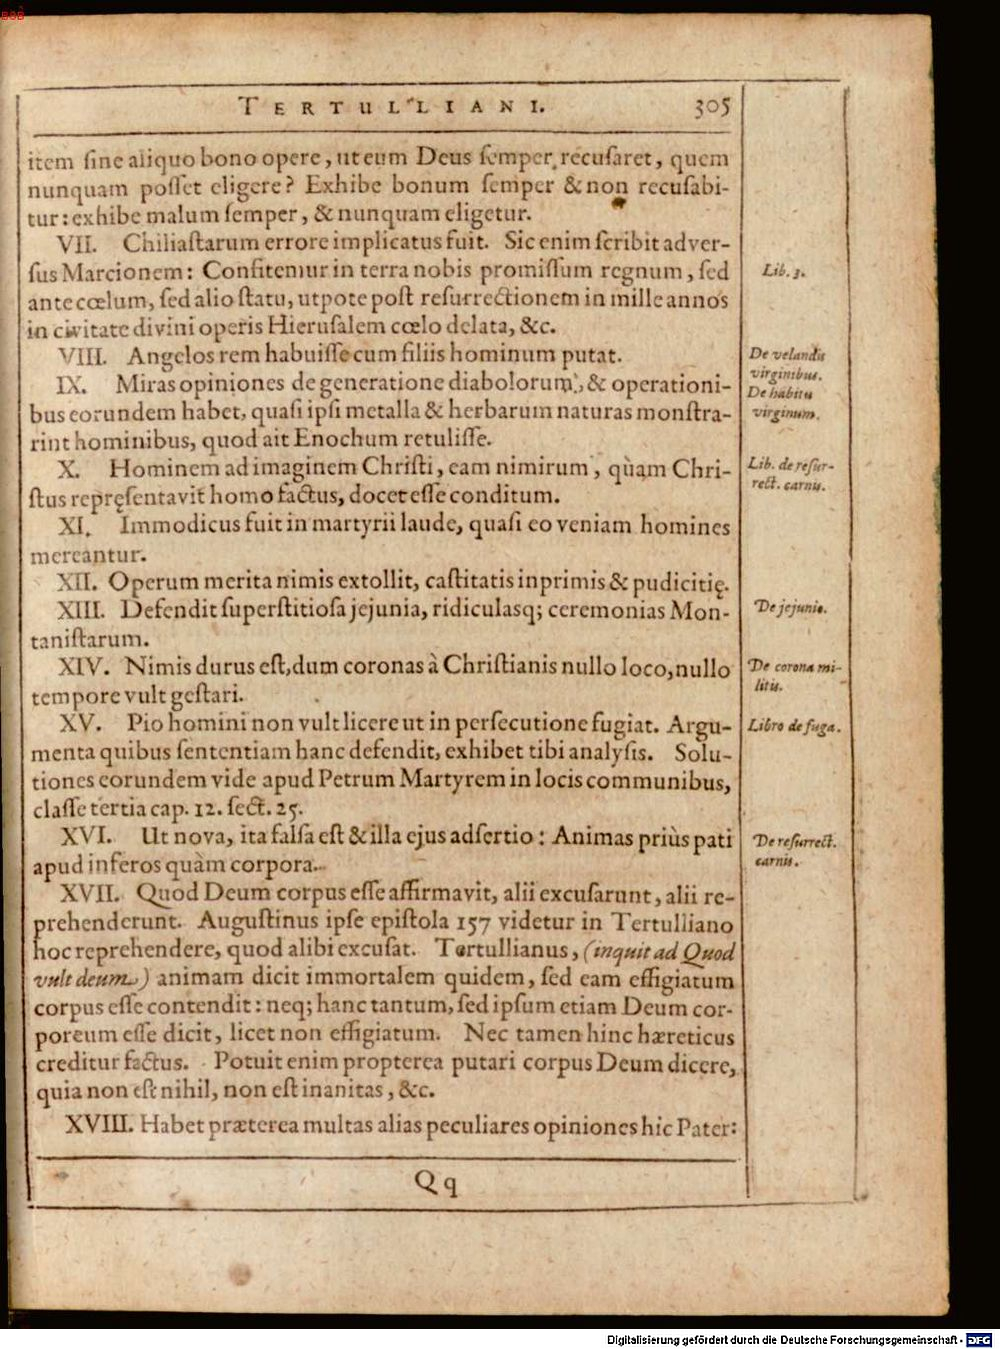 BSB
TERTULLIANI. 305
item sine aliquo bono opere, ut eum Deus semper recusaret, quem
nunquam posset eligere? Exhibe bonum semper & non recusabi-
tur: exhibe malum semper, & nunquam eligetur.
VII. Chiliastarum errore implicatus fuit. Sic enim scribit adver-
sus Marcionem: Confitemur in terra nobis promissum regnum, sed
Lib. 3.
ante cœlum, sed alio statu, utpote post resurrectionem in mille annos
in civitate divini operis Hierusalem cœlo delata, &c.
VIII. Angelos rem habuisse cum filiis hominum putat.
De velandis
virginibus.
IX. Miras opiniones de generatione diabolorum, & operationi-
De habitu
bus eorundem habet, quasi ipsi metalla & herbarum naturas monstra-
virginum.
rint hominibus, quod ait Enochum retulisse.
X. Hominem ad imaginem Christi, eam nimirum, quàm Chri-
Lib. de resur-
rect. carnis.
stus repręsentavit homo factus, docet esse conditum.
XI. Immodicus fuit in martyrii laude, quasi eo veniam homines
mereantur.
XII. Operum merita nimis extollit, castitatis inprimis & pudicitię.
XIII. Defendit superstitiosa jejunia, ridiculasq; ceremonias Mon-
De jejunio.
tanistarum.
XIV. Nimis durus est, dum coronas à Christianis nullo loco, nullo
De corona mi-
litis.
tempore vult gestari.
XV. Pio homini non vult licere ut in persecutione fugiat. Argu-
Libro de fuga.
menta quibus sententiam hanc defendit, exhibet tibi analysis. Solu-
tiones eorundem vide apud Petrum Martyrem in locis communibus,
classe tertia cap. 12. sect. 25.
XVI. Ut nova, ita falsa est & illa ejus adsertio: Animas priùs pati
De resurrect.
carnis.
apud inferos quàm corpora.
XVII. Quod Deum corpus esse affirmavit, alii excusarunt, alii re-
prehenderunt. Augustinus ipse epistola 157 videtur in Tertulliano
hoc reprehendere, quod alibi excusat. Tertullianus, (inquit ad Quod
vult deum) animam dicit immortalem quidem, sed eam effigiatum
corpus esse contendit: neq; hanc tantum, sed ipsum etiam Deum cor-
poreum esse dicit, licet non effigiatum. Nec tamen hinc hæreticus
creditur factus. Potuit enim propterea putari corpus Deum dicere,
quia non est nihil, non est inanitas, &c.
XVIII. Habet præterea multas alias peculiares opiniones hic Pater:
Qq
Digitalisierung gefördert durch die Deutsche Forschungsgemeinschaft - DFG